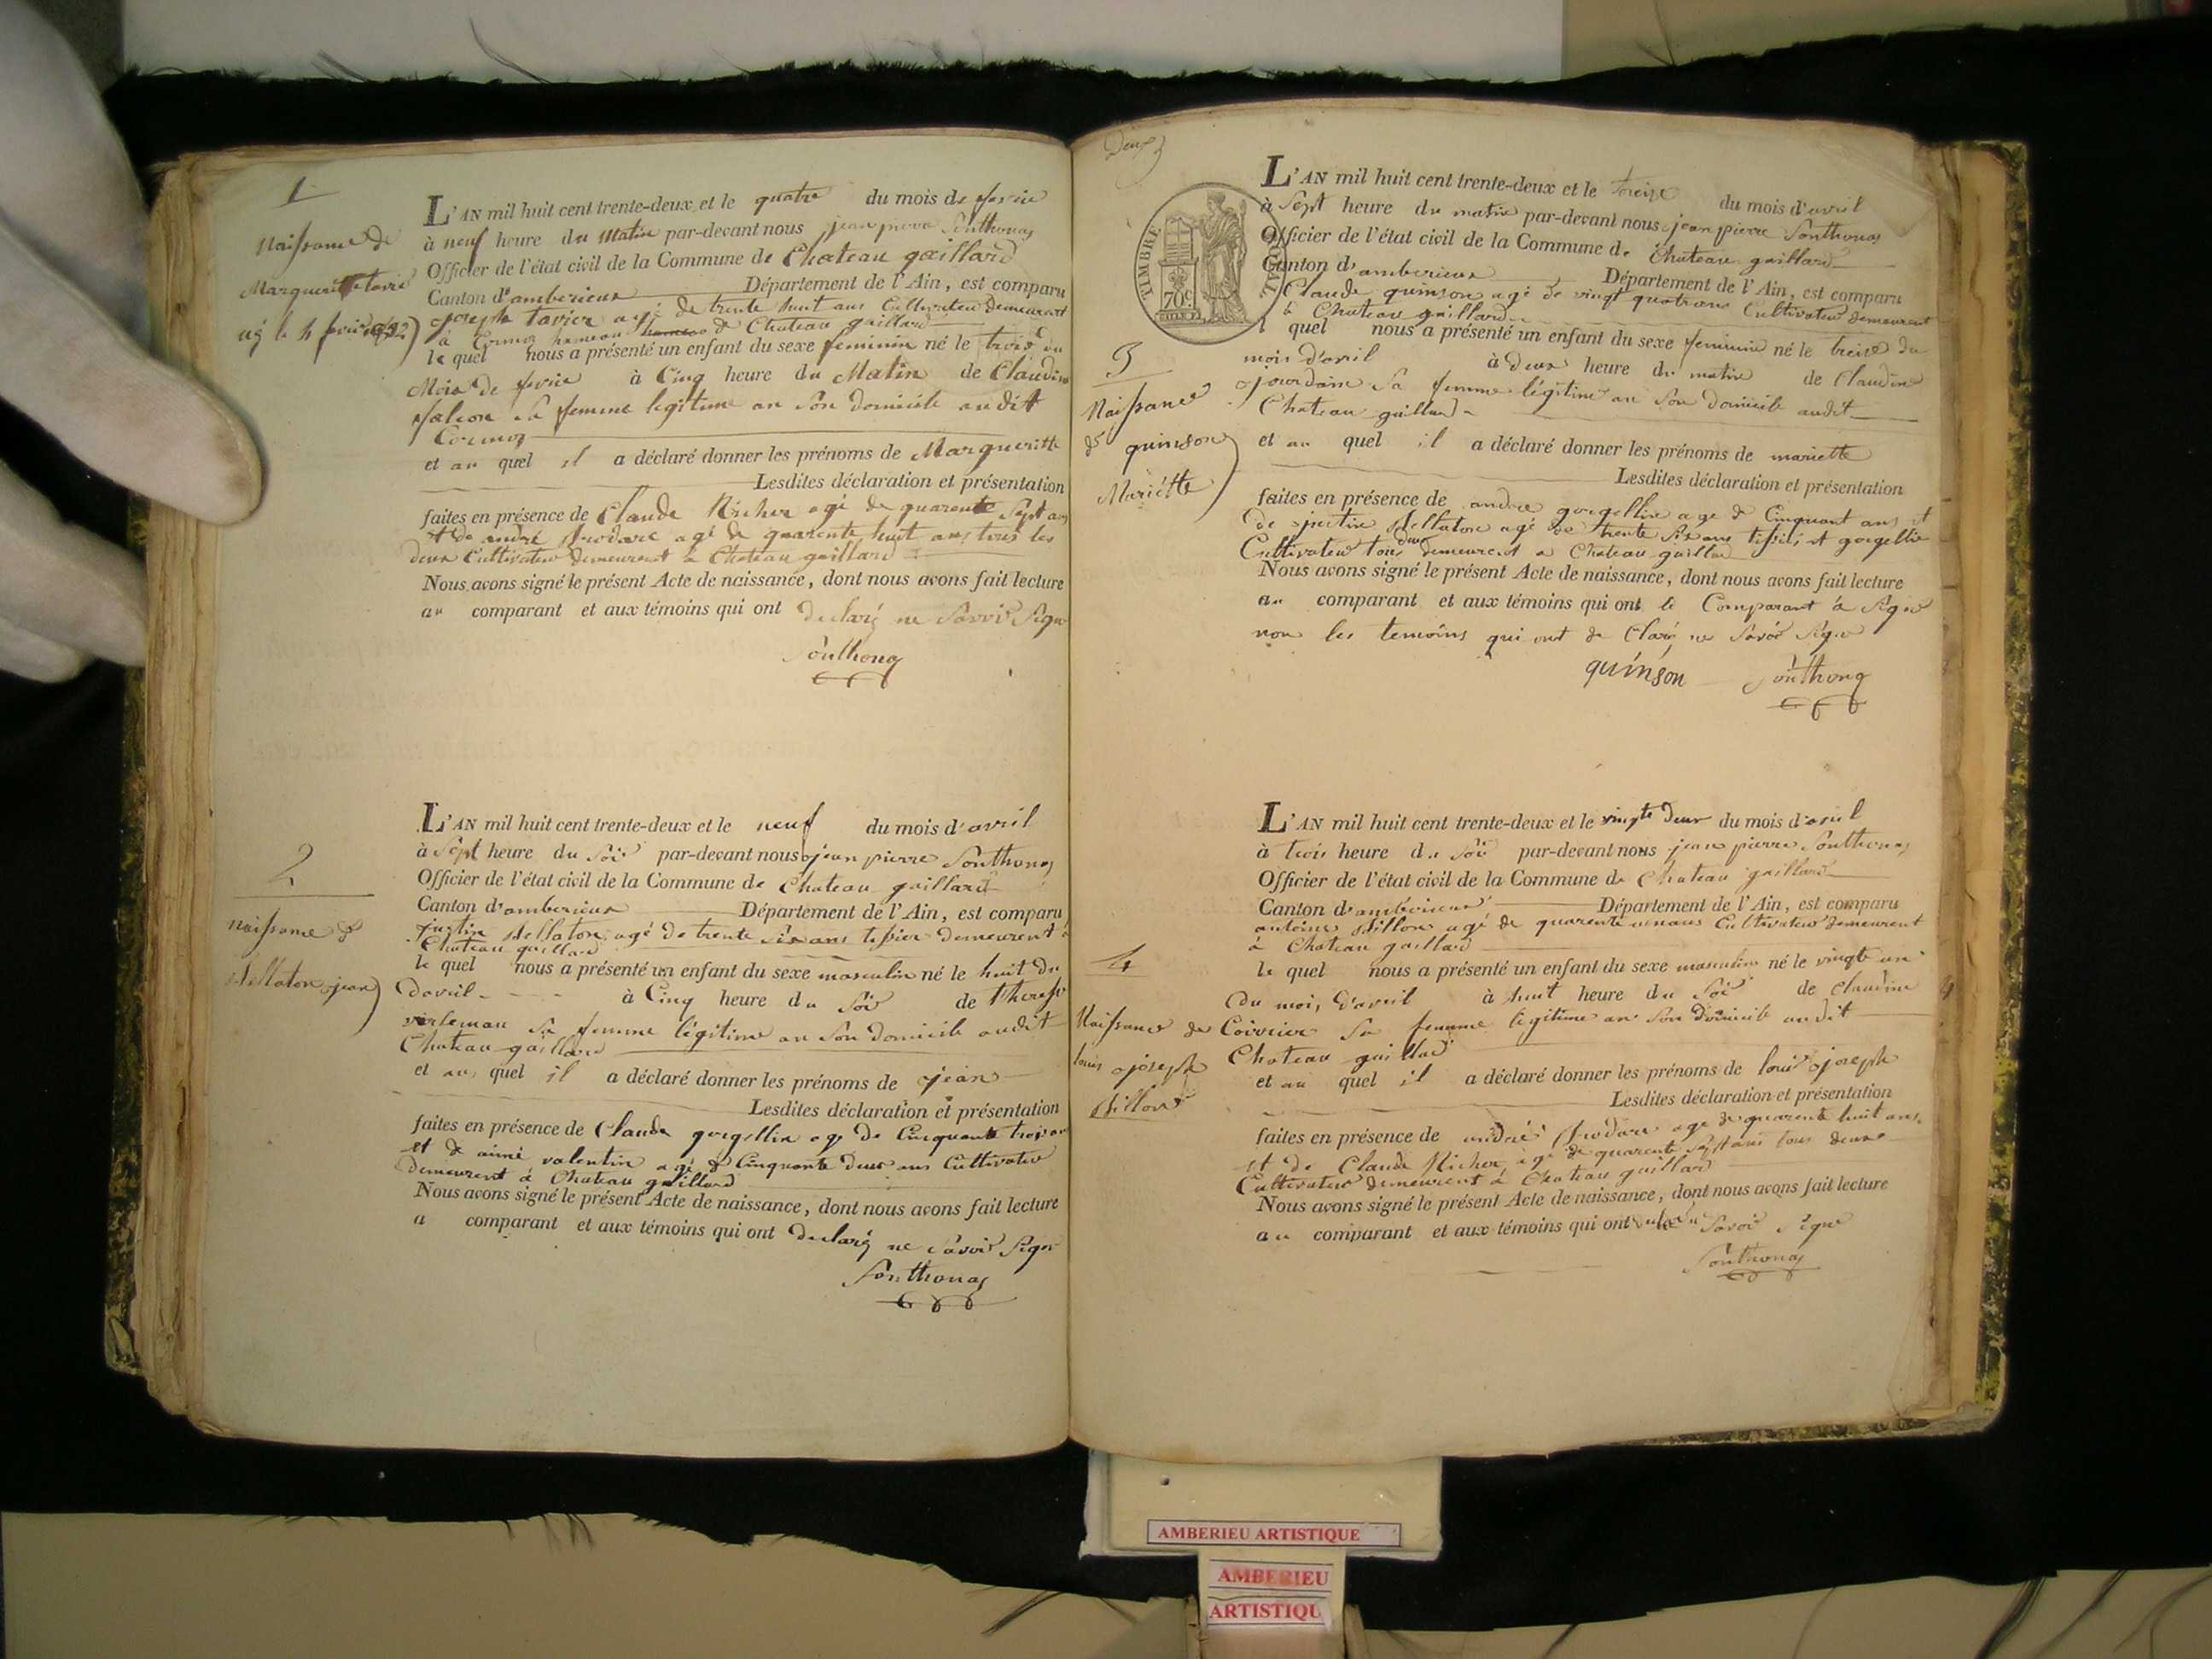 1
Naissance de
Margueritte tavié
né le 4 fevrié 1832
L'AN mil huit cent trente-deux et le quatre du mois de fevrie
à neuf heure du Matin par-devant nous jean pierre Sonthonas
Officier de l'état civil de la Commune de Chateau gaillard
Canton d'amberieux Département de l'Ain, est comparu
joseph tavier agé de trente huit ans Cultivateu demeurant
à Cormoz hameau de Chateau gaillard
le quel nous a présenté un enfant du sexe feminin né le trois du
Mois de fevrie à Cinq heure du Matin de Claudine
falcon sa femme legitime an son domicile audit
Cormoz
et au quel il a déclaré donner les prénoms de Margueritte
Lesdites déclaration et présentation
faites en présence de Claude Richer agé de quarente Sept ans
et de andré agé de quarente huit ans tous les
deux Cultivateu demeurent à Chateau gaillard
Nous avons signé le présent Acte de naissance, dont nous avons fait lecture
au comparant et aux témoins qui ont declaré ne Savoir Signe
Sonthonas
2
naissance de
jean
L'AN mil huit cent trente-deux et le neuf du mois d'avril
à Sept heure du Soir par-devant nous jean pierre Sonthonas
Officier de l'état civil de la Commune de Chateau gaillard
Canton d'amberieux Département de l'Ain, est comparu
justin agé de trente sis ans tissier demeurent à
Chateau gaillard
le quel nous a présenté un enfant du sexe masculin né le huit du
d'avril à Cinq heure du Soir de therese
sa femme légitime an son domicile audit
Chateau gaillard
et au quel il a déclaré donner les prénoms de jean
Lesdites déclaration et présentation
faites en présence de Claude gorgellin age de Cinquante trois ans
et de aimé valentin agé de Cinquante deux ans Cultivateu
demeurent à Chateau gaillard
Nous avons signé le présent Acte de naissance, dont nous avons fait lecture
a comparant et aux témoins qui ont declaré ne Savoir Signe
Sonthonas
Deux
TIMBRE ROYAL
70c
L'AN mil huit cent trente-deux et le treize du mois d'avril
à Sept heure du matin par-devant nous jean pierre Sonthonas
Officier de l'état civil de la Commune de Chateau gaillard
Canton d'amberieux Département de l'Ain, est comparu
Claude quinson agé de vingt quatre ans Cultivateu demeurent
à Chateau gaillard
l quel nous a présenté un enfant du sexe feminin né le treize du
mois d'avril à deux heure du matin de Claudine
jourdain sa femme légitime an son domicile audit
Chateau gaillard
3
Naissance
de quinson
Mariétte
et au quel il a déclaré donner les prénoms de mariette
Lesdites déclaration et présentation
faites en présence de andre gorgellin age de Cinquant ans et
de justin agé de trente sis ans tissié, et gorgellin
Cultivateu tous deux demeurent a Chateau gaillard
Nous avons signé le présent Acte de naissance, dont nous avons fait lecture
au comparant et aux témoins qui ont le Comparant à signe
non les temoins qui ont de Claré ne Savoir Signe
quinson Sonthonas
L'AN mil huit cent trente-deux et le vingte deux du mois d'avril
à trois heure du Soir par-devant nous jean pierre Sonthonas
Officier de l'état civil de la Commune de Chateau gaillard
Canton d'amberieux Département de l'Ain, est comparu
antoine agé de quarente ans Cultivateu demeurent
à Chateau gaillard
le quel nous a présenté un enfant du sexe masculin né le vingte un
du mois d'avril à huit heure du Soir de Claudine
Coirrier sa femme legitime an son domicile audit
Chateau gaillard
4
Naissance de
louis joseph
et au quel il a déclaré donner les prénoms de louis joseph
Lesdites déclaration et présentation
faites en présence de andré age de quarente huit ans
et de Claude Richer agé de quarente Sept ans tous deux
Cultivateu demeurent à Chateau gaillard
Nous avons signé le présent Acte de naissance, dont nous avons fait lecture
au comparant et aux témoins qui ont Savoir Signe
Sonthonas
AMBERIEU ARTISTIQUE
AMBERIEU
ARTISTIQU